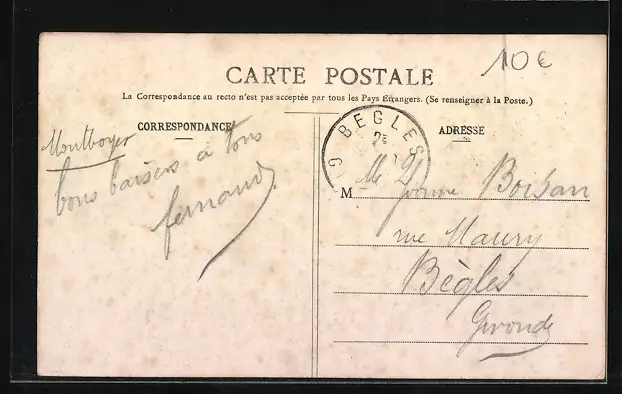 10 €
CARTE POSTALE
La Correspondance au recto n'est pas acceptée par tous les Pays Etrangers. (Se renseigner à la Poste.)
CORRESPONDANCE
Montboyer
bons baisers à tous
fernand
ADRESSE
BEGLES
M lle Yvonne Boisan
rue Maury
Bègles
Gironde